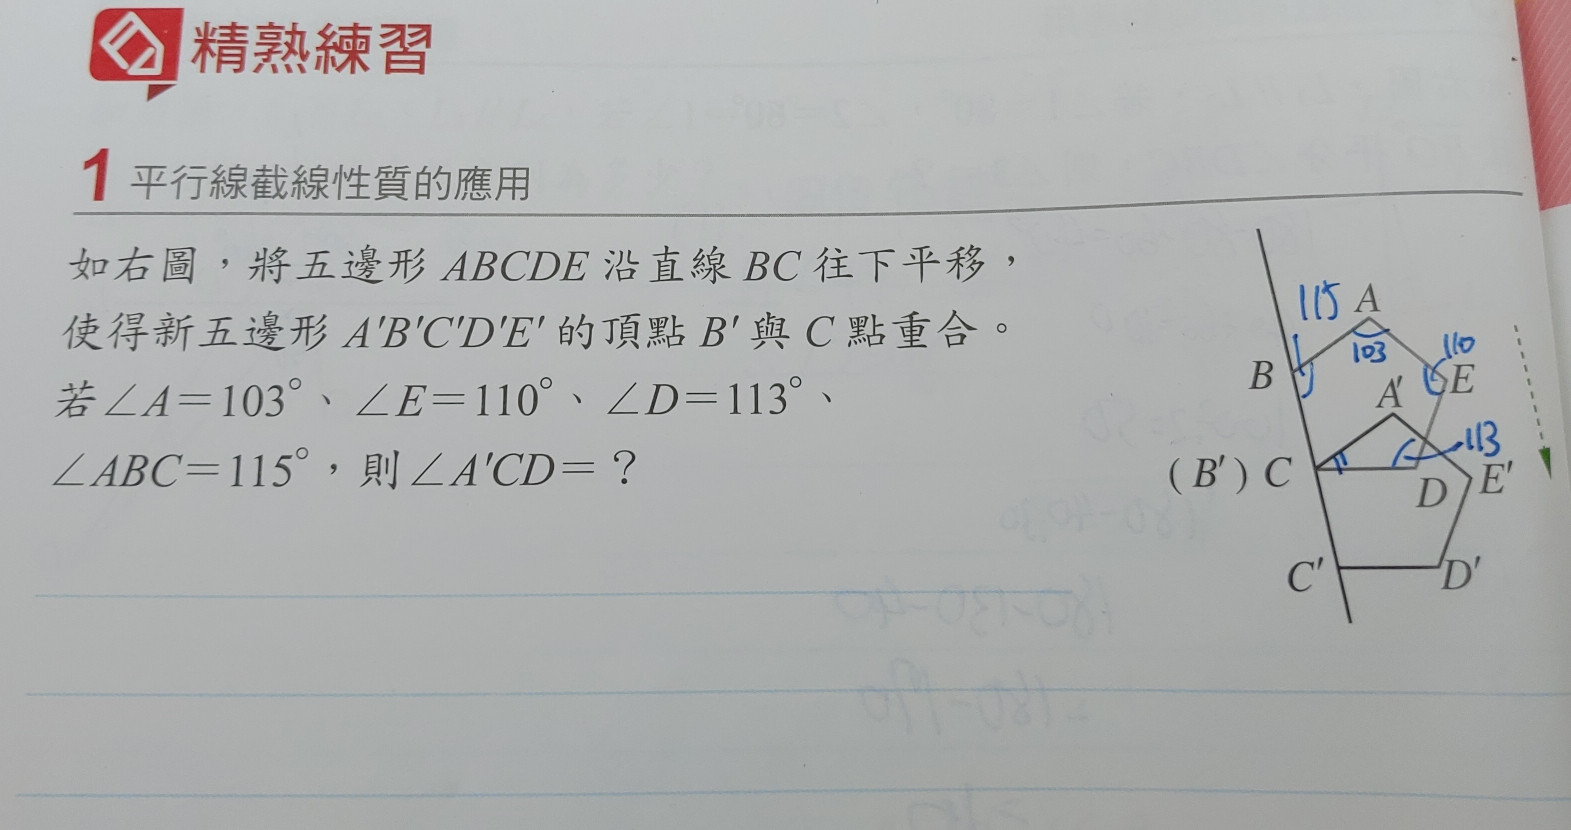 精熟練習
1 平行線截線性質的應用
如右圖，將五邊形 ABCDE 沿直線 BC 往下平移，
使得新五邊形 A'B'C'D'E' 的頂點 B' 與 C 點重合。
若∠A＝103°、∠E＝110°、∠D＝113°、
∠ABC＝115°，則∠A'CD＝？
115 A
103 110
B A' E
113
(B') C D E'
C' D'